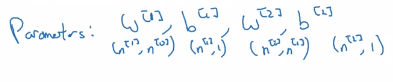 Parameters: w^[1], b^[1], w^[2], b^[2]
(n^[1], n^[0]) (n^[1], 1) (n^[2], n^[1]) (n^[2], 1)